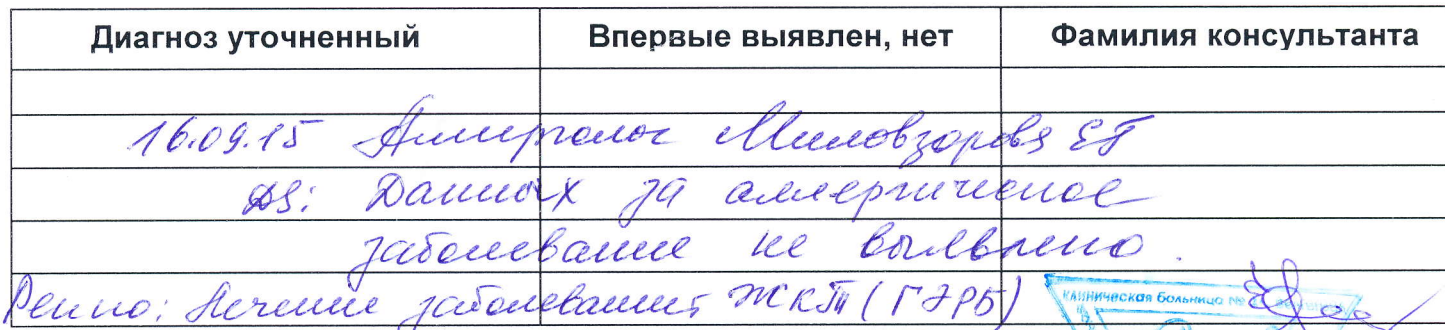 Диагноз уточненный Впервые выявлен, нет Фамилия консультанта
16.09.15 Аллерголог Миловзорова ЕГ
DS: Данных за аллергическое
заболевание не выявлено.
Реком: Лечение заболевания ЖКТ (ГЭРБ)
Клиническая больница №